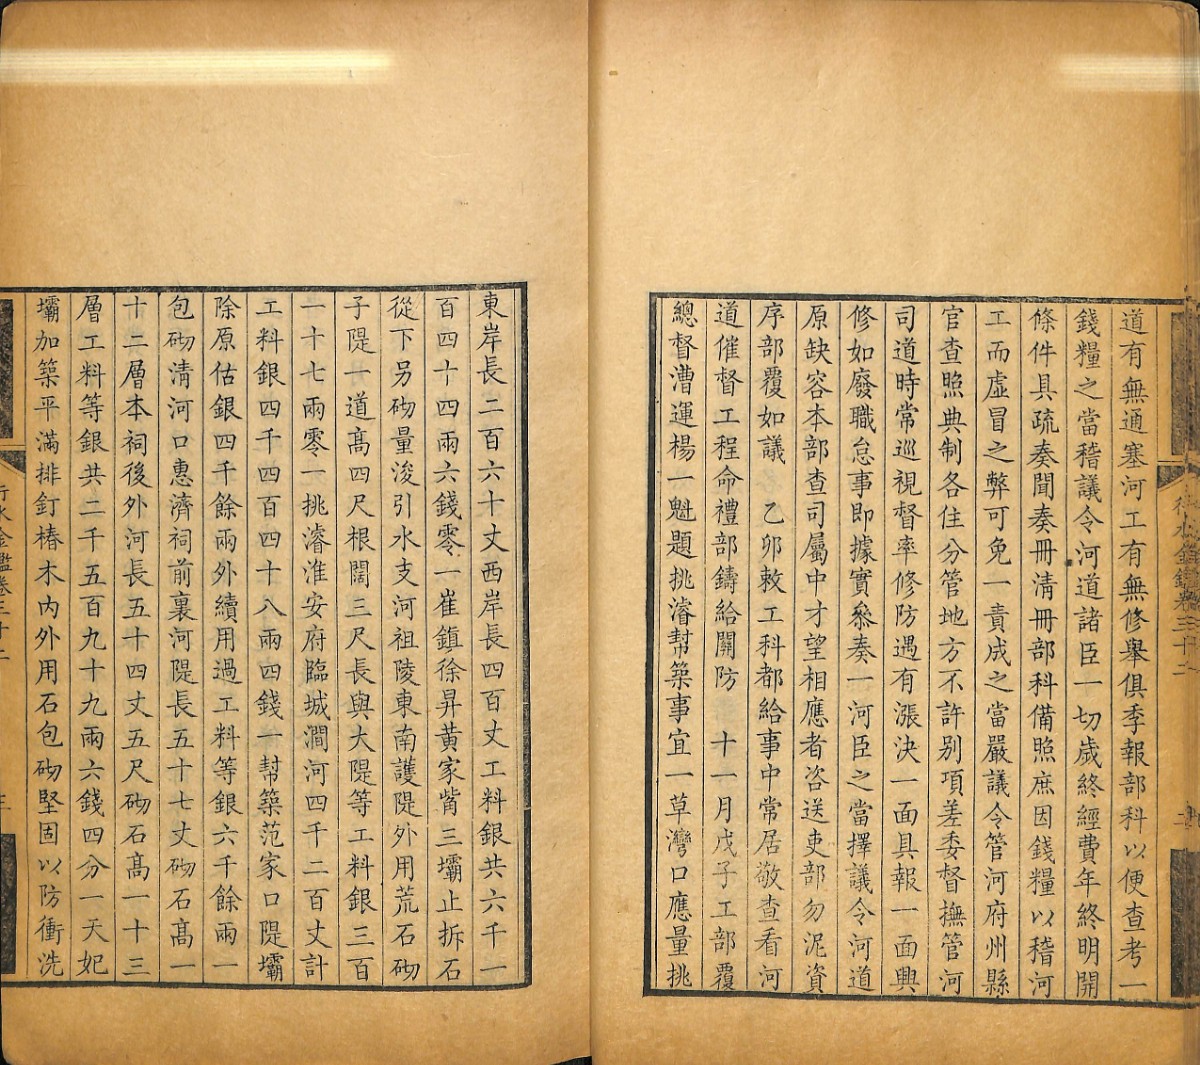 道有無通塞河工有無修舉俱季報部科以便查考一
錢糧之當稽議令河道諸臣一切歲終經費年終明開
條件具疏奏聞奏冊清冊部科備照庶因錢糧以稽河
工而虛冒之弊可免一責成之當嚴議令管河府州縣
官查照典制各住分管地方不許别項差委督撫管河
司道時常巡視督率修防遇有漲決一面具報一面興
修如廢職怠事即據實叅奏一河臣之當擇議令河道
原缺容本部查司屬中才望相應者咨送吏部勿泥資
序部覆如議 乙卯敕工科都給事中常居敬查看河
道催督工程命禮部鑄給關防 十一月戊子工部覆
總督漕運楊一魁題挑濬幫築事宜一草灣口應量挑
東岸長二百六十丈西岸長四百丈工料銀共六千一
百四十四兩六錢零一崔鎮徐昇黃家嘴三壩止拆石
從下另砌量浚引水支河祖陵東南護隄外用荒石砌
子隄一道髙四尺根闊三尺長與大隄等工料銀三百
一十七兩零一挑濬淮安府臨城澗河四千二百丈計
工料銀四千四百四十八兩四錢一幫築范家口隄壩
除原估銀四千餘兩外續用過工料等銀六千餘兩一
包砌清河口惠濟祠前裏河隄長五十七丈砌石髙一
十二層本祠後外河長五十四丈五尺砌石髙一十三
層工料等銀共二千五百九十九兩六錢四分一天妃
壩加築平滿排釘樁木內外用石包砌堅固以防衝洗
行水金鑑卷三十二
三